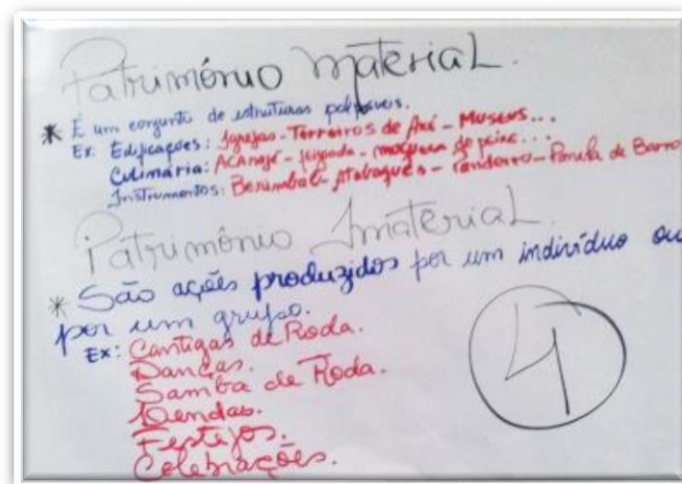 Patrimônio material.
* É um conjunto de estruturas palpáveis.
Ex: Edificações: Igrejas - Terreiros de Axé - Museus...
Culinária: ACARAJÉ - feijoada - moqueca de peixe...
Instrumentos: Berimbau - Atabaques - Pandeiro - Panela de Barro
Patrimônio Imaterial.
* São ações produzidos por um indivíduo ou
por um grupo.
Ex: Cantigas de Roda.
Danças.
Samba de Roda.
Lendas.
Festejos.
Celebrações.
4